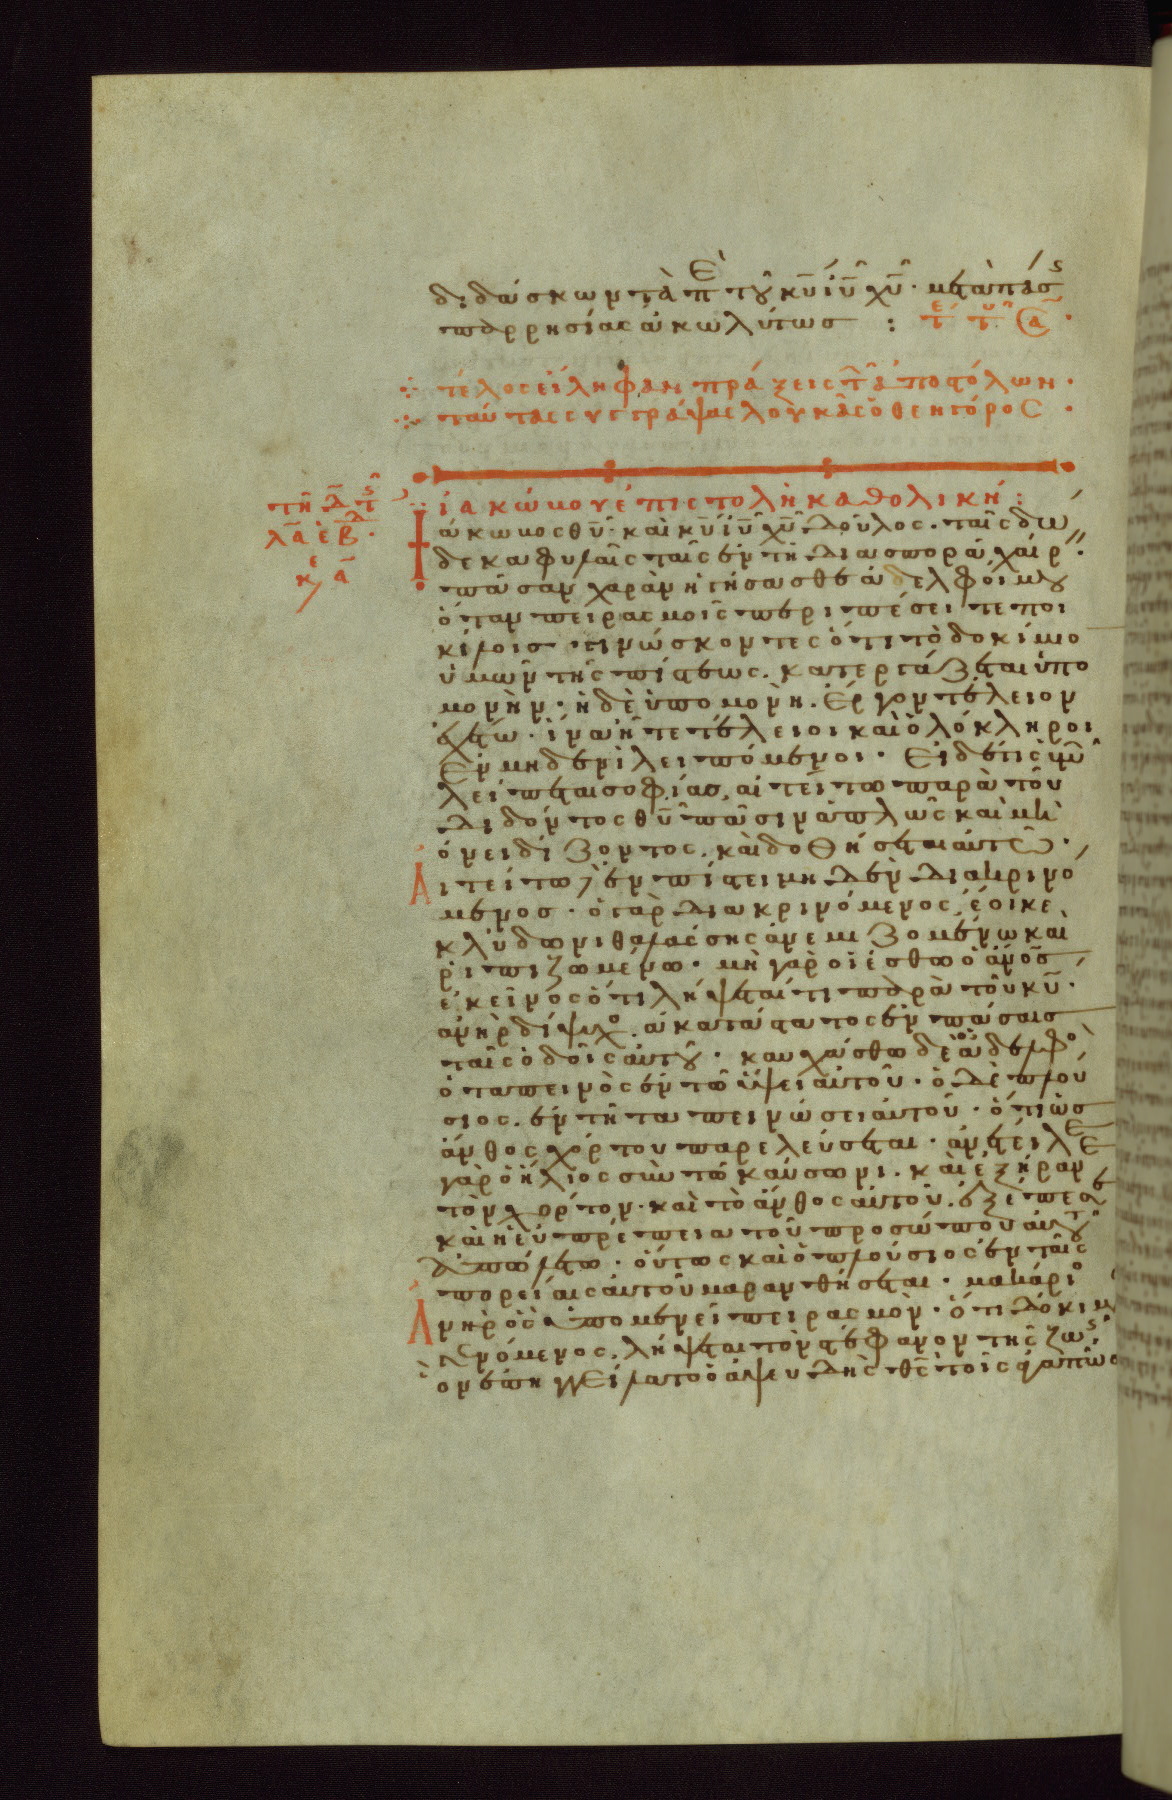 διδάσκων τὰ π ε τοῦ κυ ιυ χυ· μετὰ πάσς
παρρησίας ἀκωλύτως :
τέλος εἴληφαν πράξεις τῶ ἀποστόλων·
ταύτας συγγράψας λουκᾶς ὁ θεηγόρος·
ἰακώβου ἐπιστολὴ καθολική:
Ιάκωβος θυ καὶ κυ ιυ χυ δοῦλος. ταῖς δώ
δεκα φυλαῖς ταῖς ἐν τῆ διασπορᾶ χαίρ
πᾶσαν χαρὰν ἡγήσασθε ἀδελφοί μου
ὅταν πειρασμοῖς περιπέσειτε ποι
κίλοις γινώσκοντες ὅτι τὸ δοκίμιο
ὑμῶν τῆς πίστεως. κατεργάζεται ὑπο
μονήν· ἡ δὲ ὑπομονὴ. ἔργον τέλειον
ἐχέτω· ἵνα ἦτε τέλειοι καὶ ὁλόκληροι
ἐν μηδενὶ λειπόμενοι· Εἰ δέ τις ὑμῶ
λείπεται σοφίας, αἰτείτω παρὰ τοῦ
διδόντος θυ πᾶσιν ἁπλῶς καὶ μὴ
ὀνειδίζοντος. καὶ δοθήσεται αὐτῶ·
Αιτείτω δὲ ἐν πίστει μηδὲν διακρινό
μενος· ὁ γὰρ διακρινόμενος, ἔοικε
κλύδωνι θαλάσσης ἀνεμιζομένω καὶ
ριπιζωμένω· μὴ γὰρ οἰέσθω ὁ ἄνος
ἐκεῖνος ὅτι λήψεταί τι παρὰ τοῦ κυ·
ἀνὴρ δίψυχο. ἀκατάστατος ἐν πάσαις
ταῖς ὁδοῖς αὐτοῦ· καυχάσθω δὲ ὁ ἀδελφο
ὁ ταπεινὸς ἐν τῶ ὕψει αὐτοῦ· ὁ δὲ πλού
σιος. ἐν τῆ ταπεινώσει αὐτοῦ· ὅτι ὡς
ἄνθος χόρτου παρελεύσεται· ἀνέτειλε
γὰρ ὁ ἥλιος σὺν τῶ καύσωνι. καὶ ἐξήραν
τὸν χόρτον· καὶ τὸ ἄνθος αὐτοῦ. ἐξέπεσε
καὶ ἡ εὐπρέπεια τοῦ προσώπου αὐτοῦ
ἀπώλετο· οὕτως καὶ ὁ πλούσιος ἐν ταῖς
πορείαις αὐτοῦ μαρανθήσεται· μακάριο
Ανὴρ ὃς ὑπομενεῖ πειρασμόν· ὅτι δόκιμ
γενόμενος. λήψεται τὸν στέφανον τῆς ζω
ὃν ἐπηγγείλατο ὁ ἀψευδὴς θς τοῖς ἀγαπῶσ